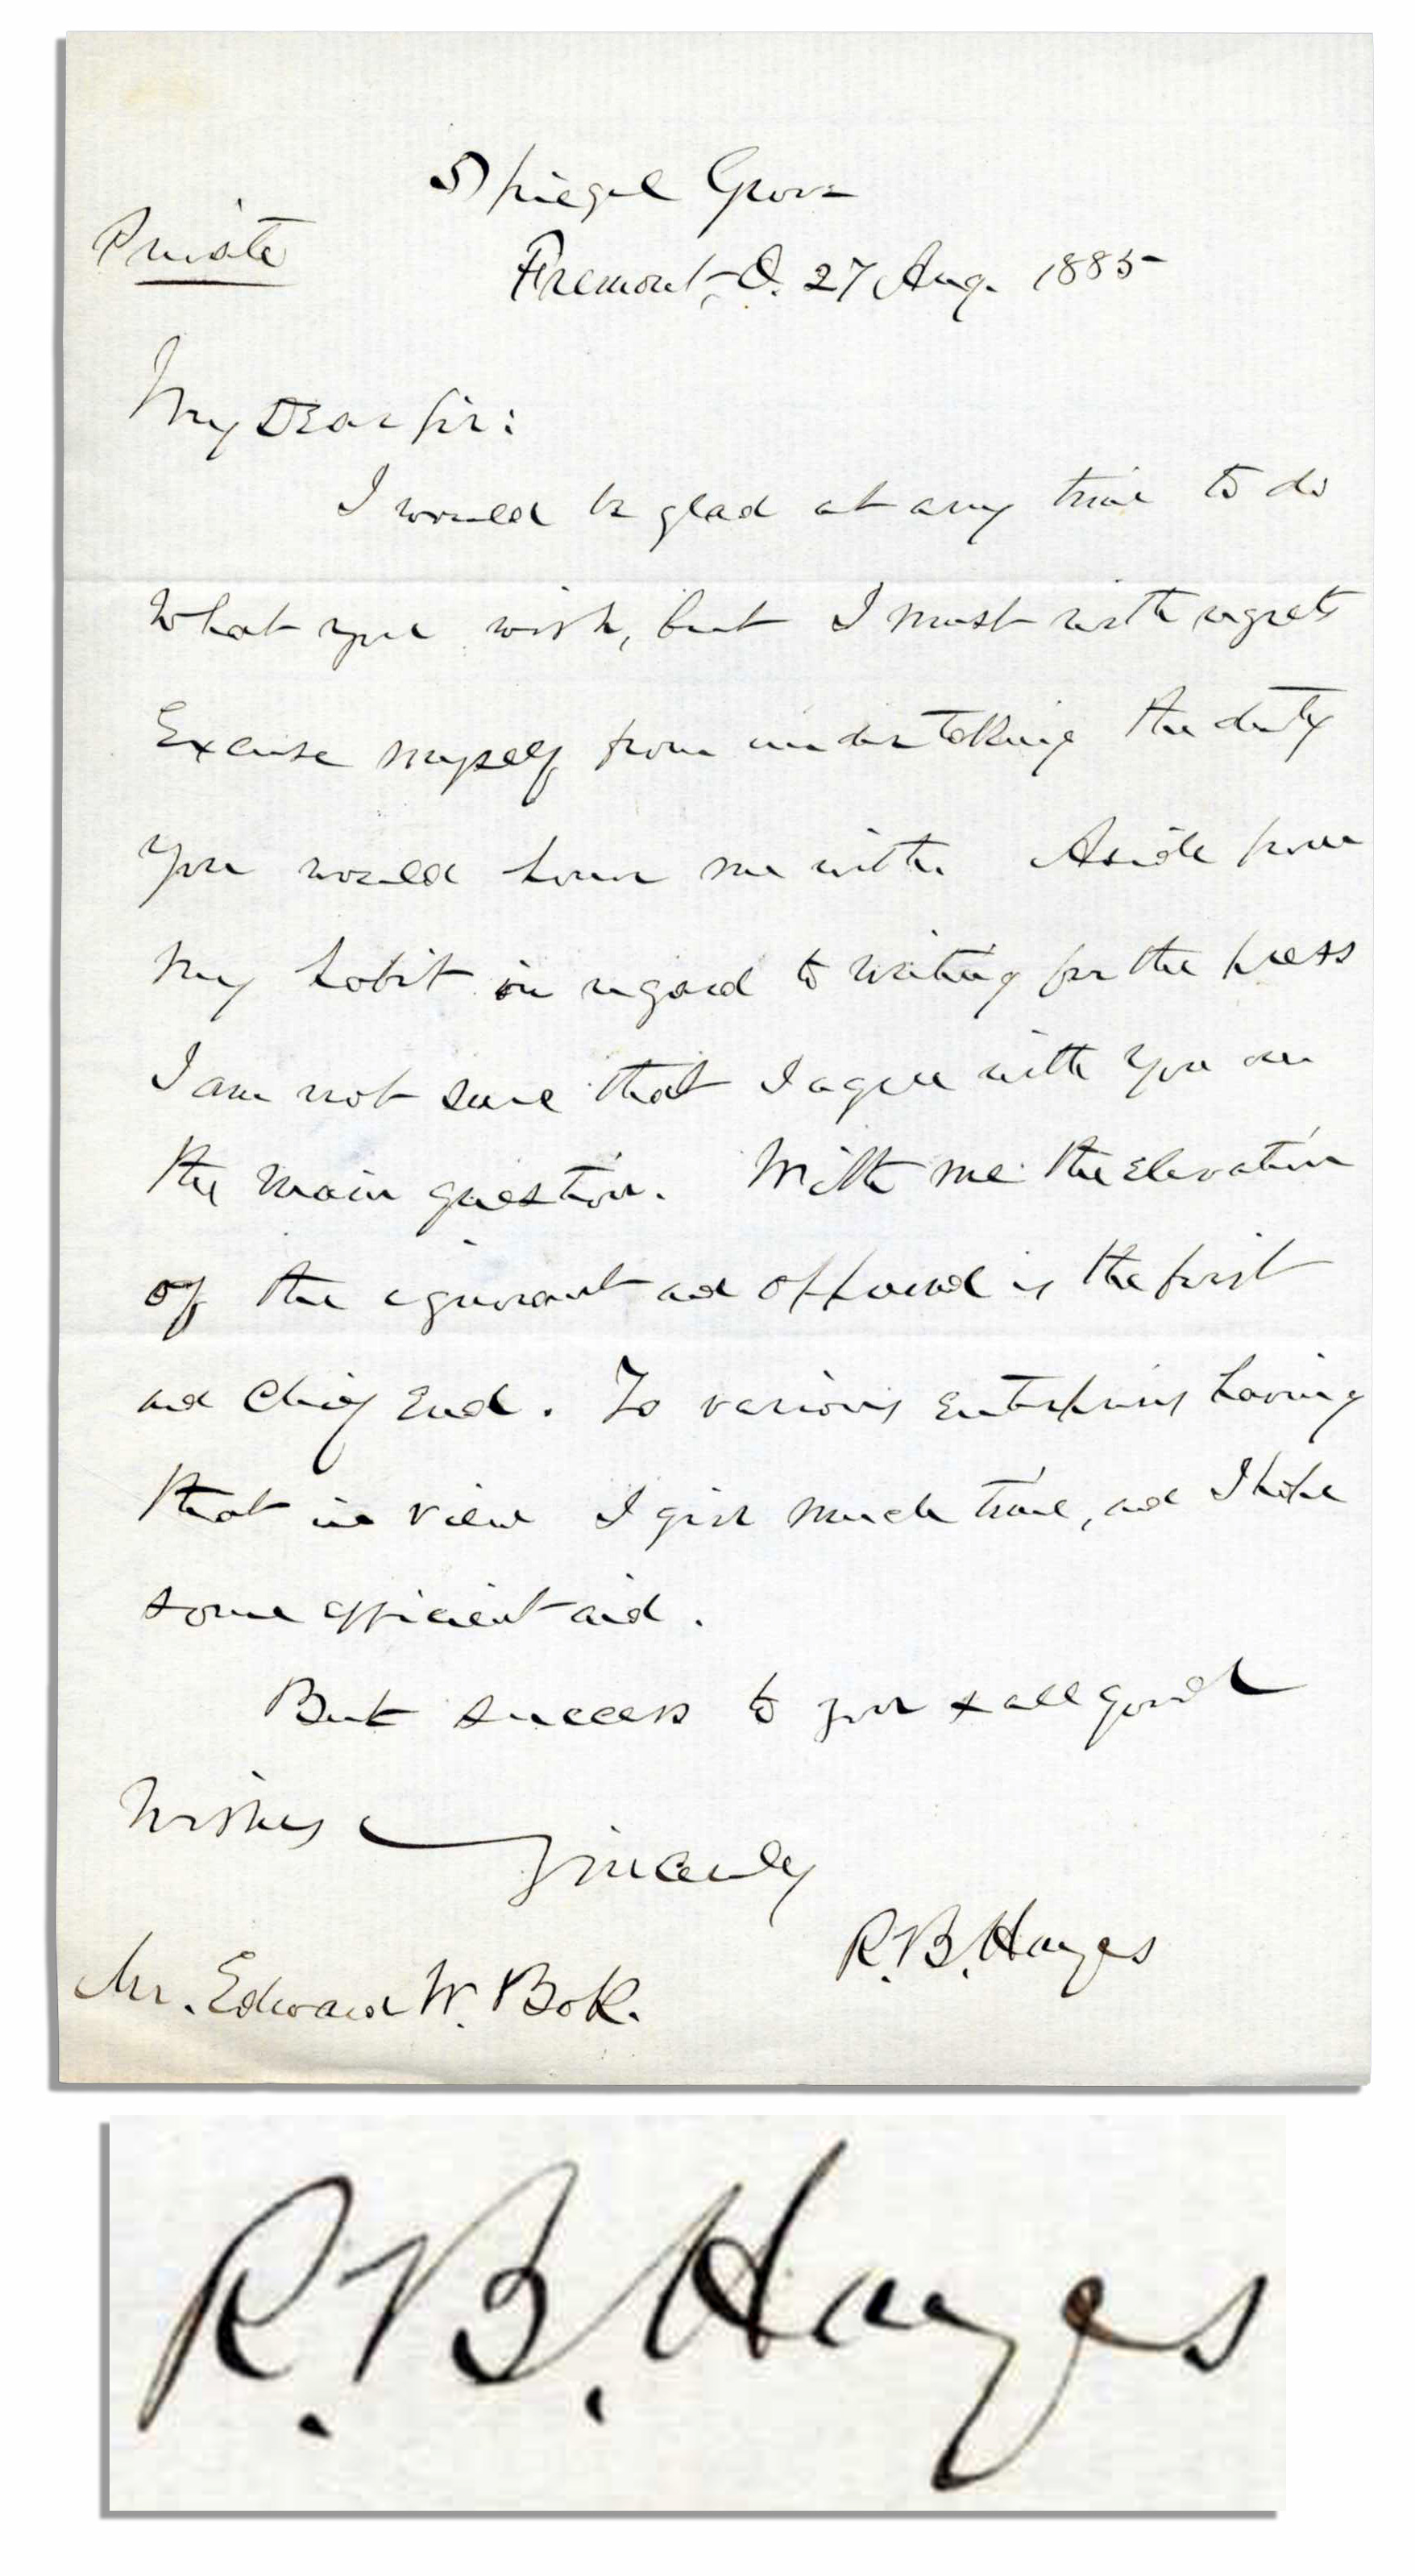 Spiegel Grove
Private
Fremont, O. 27 Aug. 1885
My Dear Sir:
I would be glad at any time to do
what you wish, but I must with regrets
Excuse myself from undertaking the duty
you would honor me with. Aside from
my habit in regard to writing for the press
I am not sure that I agree with you on
the main question. With me the elevation
of the ignorant and oppressed is the first
and chief End. To various Enterprises having
that in view I give much time, and I hope
some efficient aid.
But success to you & all good
wishes
Sincerely
R. B. Hayes
Mr. Edward W. Bok.
R. B. Hayes